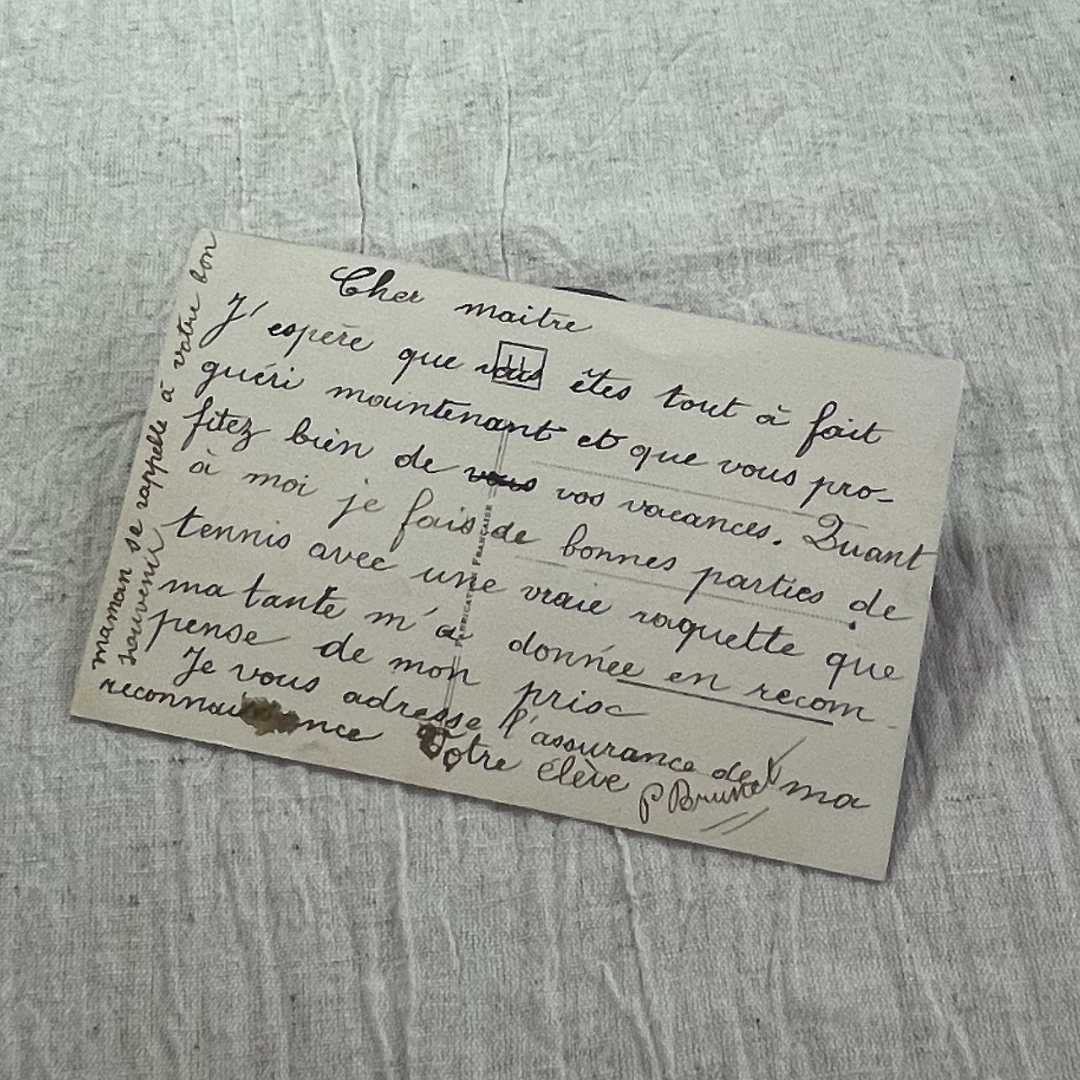 Cher maitre
J'espère que vous êtes tout à fait
guéri maintenant et que vous pro-
fitez bien de vos vacances. Quant
à moi je fais de bonnes parties de
tennis avec une vraie raquette que
ma tante m'a donnée en recom-
pense de mon prix
Je vous adresse l'assurance de ma
reconnaissance Votre élève
P Brunet
maman se rappelle à votre bon
souvenir
FABRICATION FRANÇAISE